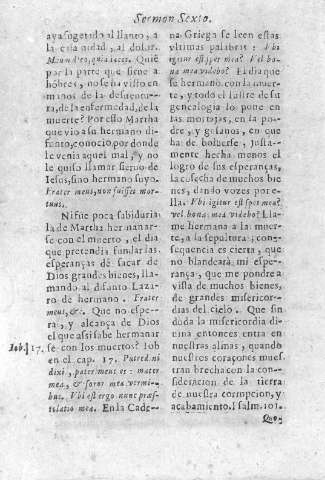 Sermon Sexto.
aya sugetado al llanto, a
la calamidad, al dolor.
hóbres, no se ha visto en
manos de la desuentu-
ra, de la enfermedad, de la
muerte? Por esso Martha
que vio a su hermano di-
funto, conocio por donde
le venia aquel mal, y no
le quiso llamar sieruo de
Iesus, sino hermano suyo.
Frater meus, non fuisset mor-
tuus.
Ni fue poca sabiduria
la de Martha hermanar-
se con el muerto, el dia
que pretendia fundar las
esperanças de sacar de
Dios grandes bienes, lla-
mando al difunto Laza-
ro de hermano. Frater
meus, &. Que no espe-
ra, y alcança de Dios
el que assi sabe hermanar
Iob. 17. se con los muertos? Iob
en el cap. 17. Putredini
dixi, pater meus es: mater
mea, & soror mea vermi-
bus. Vbi est ergo nunc præs-
tolatio mea. En la Cade-
na Griega se leen estas
vltimas palabras: Vbi
igitur est spes mea? Vel bo-
na mea videbo? El dia que
se hermanò con la muer-
te, y todo el lustre de su
genealogia lo pone en
las mortajas, en la po-
dre, y gusanos, en que
ha de boluerse, justa-
mente hecha menos el
logro de sus esperanças,
la cosecha de muchos bie-
nes, dando vozes por e-
lla. Vbi igitur est spes mea?
vel bona mea videbo? Lla-
me hermana a la muer-
te, a la sepultura; con-
sequencia es cierta, que
no blandearà mi espe-
rança, que me pondre a
vista de muchos bienes,
de grandes misericor-
dias del cielo. Que sin
duda la misericordia di-
uina entonces entra en
nuestras almas, quando
nuestros coraçones mues-
tran brecha con la con-
sideracion de la tierra
de nuestra corrupcion, y
acabamiento. Psalm. 101.
Quo-